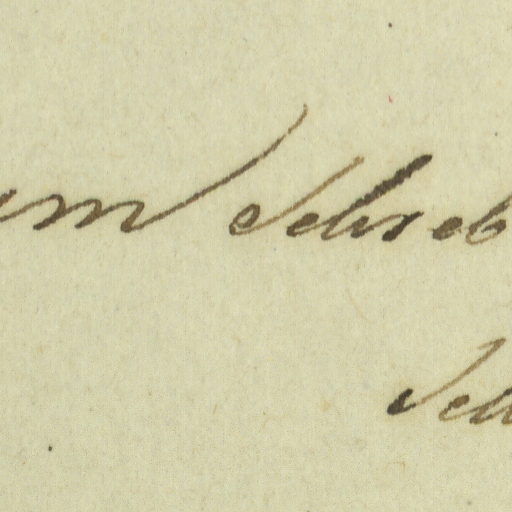 um Schreb
Sch